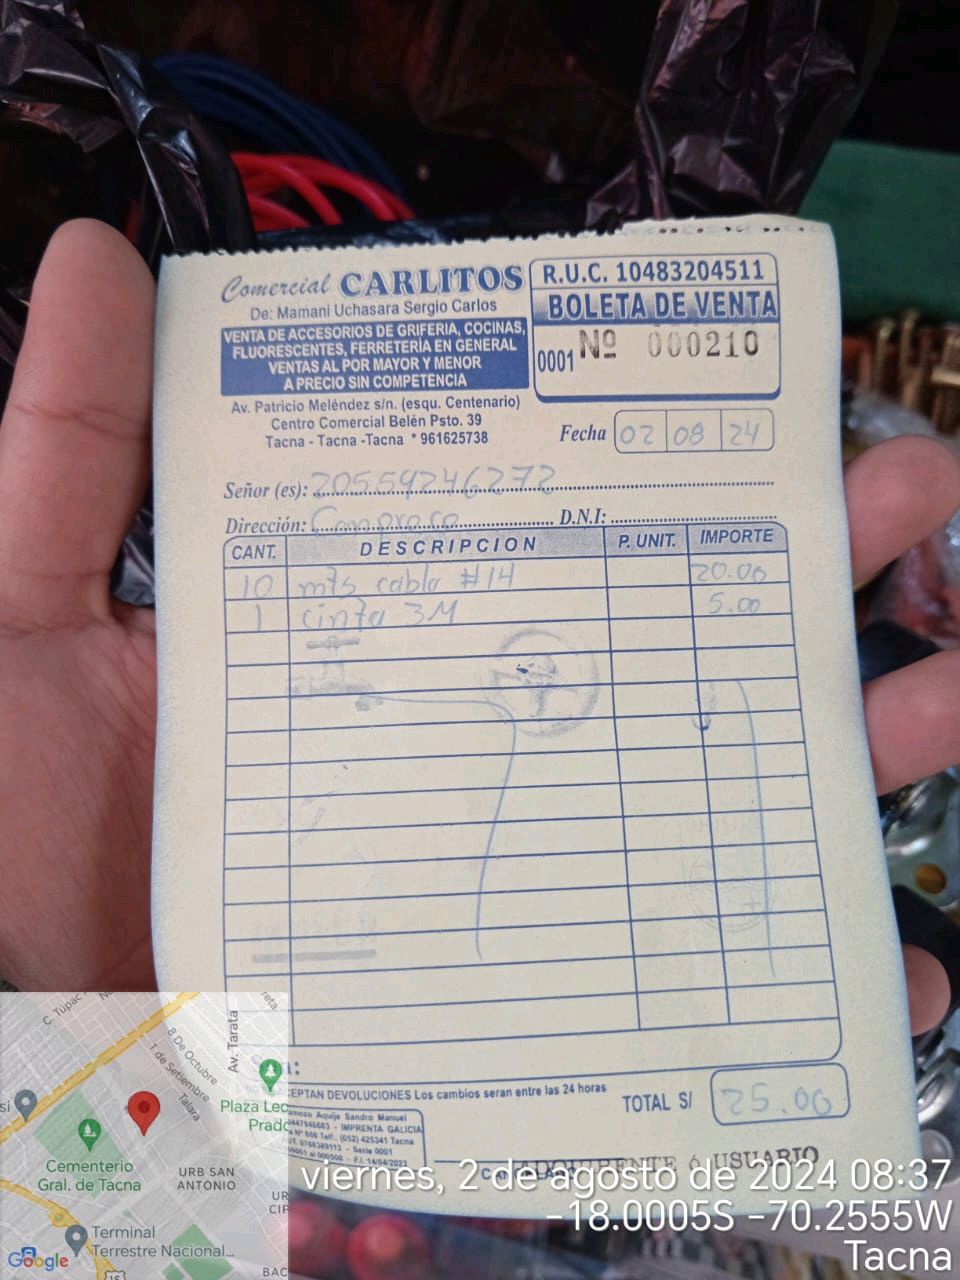 Comercial CARLITOS
De: Mamani Uchasara Sergio Carlos
VENTA DE ACCESORIOS DE GRIFERIA, COCINAS,
FLUORESCENTES, FERRETERÍA EN GENERAL
VENTAS AL POR MAYOR Y MENOR
A PRECIO SIN COMPETENCIA
Av. Patricio Meléndez s/n. (esqu. Centenario)
Centro Comercial Belén Psto. 39
Tacna - Tacna -Tacna * 961625738
R.U.C. 10483204511
BOLETA DE VENTA
0001 Nº 000210
Fecha 02 08 24
Señor (es): 20559246272
Dirección: D.N.I:
CANT. DESCRIPCION P. UNIT. IMPORTE
10 mts cable #14 20.00
1 cinta 3M 5.00
CEPTAN DEVOLUCIONES Los cambios seran entre las 24 horas
TOTAL S/ 25.00
Aquije Sandro Manuel
- IMPRENTA GALICIA
Nº 666 Telf.: (052) 425341 Tacna
- Serie 0001
- F.I. 14/04/2023
ó USUARIO
viernes, 2 de agosto de 2024 08:37
-18.0005S -70.2555W
Tacna
C. Túpac
Av. Tarata
8 De Octubre
1 de Setiembre
Talara
Plaza Leo
Prado
Cementerio
Gral. de Tacna
URB SAN
ANTONIO
Terminal
Terrestre Nacional...
Google